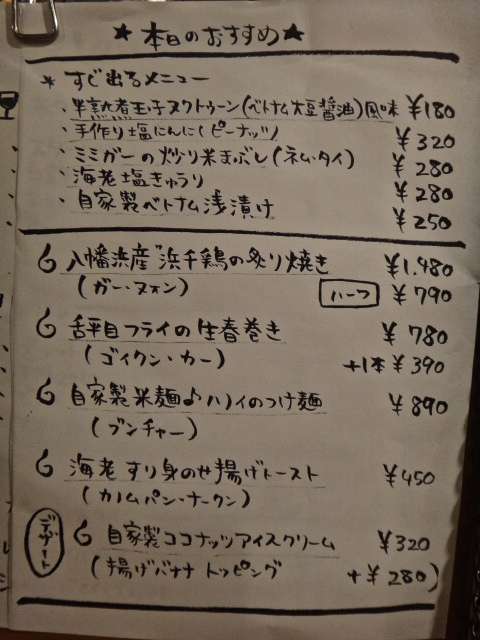 ★本日のおすすめ★
* すぐ出るメニュー
・半熟煮玉子ヌクトゥーン(ベトナム大豆醤油)風味 ¥180
・手作り塩にんにくピーナッツ ¥320
・ミミガーの炒り米まぶし(ネム・タイ) ¥280
・海老塩きゅうり ¥280
・自家製ベトナム浅漬け ¥250
八幡浜産"浜千鶏の炙り焼き ¥1,480
(ガー・ヌォン) ハーフ ¥790
舌平目フライの生春巻き ¥780
(ゴイクン・カー) +1本¥390
自家製米麺♪ハノイのつけ麺 ¥890
(ブンチャー)
海老すり身のせ揚げトースト ¥450
(カノムパン・ナークン)
デザート 自家製ココナッツアイスクリーム ¥320
(揚げバナナトッピング +¥280)